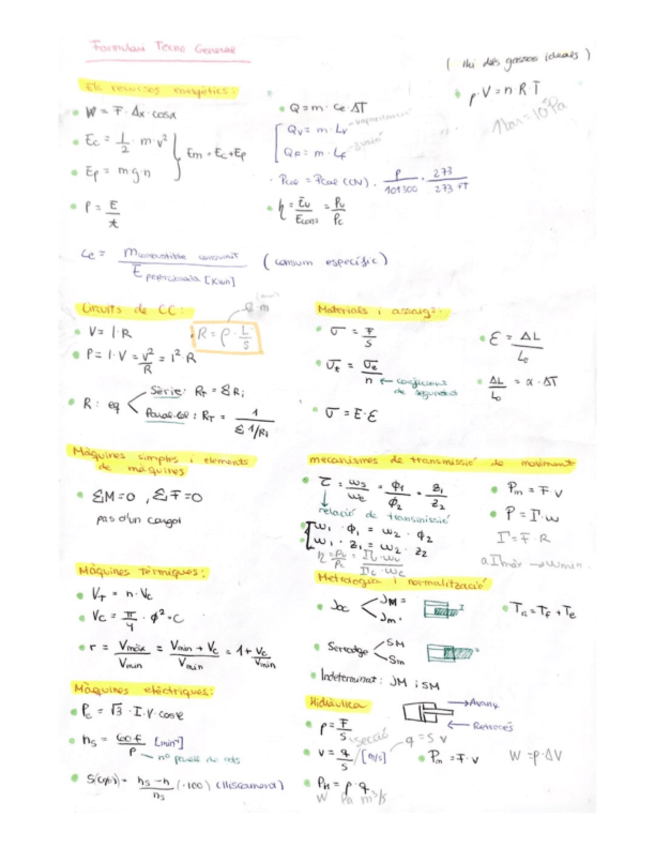 Formulari Tecno General
(llei dels gasos ideals)
Els recursos energètics:
W = F · Δx · cosα
Ec = 1/2 · m · v²
Ep = m g h
Em = Ec + Ep
P = E/t
Q = m · Ce · ΔT
Qv = m · Lv
Qf = m · Lf
Pcal = Pcal (CN) · P/101300 · 273/273+T
η = Eu/Econs = Pu/Pc
p · V = n R · T
1 bar = 10⁵ Pa
Ce = m combustible consumit / E proporcionada [Kwh] (consum específic)
Circuits de CC:
V = I · R
R = ρ · L/S
Ω · m
P = I · V = V²/R = I² · R
R: eq
Sèrie: RT = ΣRi
Paral·lel: RT = 1/Σ1/Ri
Materials i assaig:
σ = F/S
σt = σe/n ← coeficient de seguretat
σ = E · Ɛ
Ɛ = ΔL/L₀
ΔL/L₀ = α · ΔT
Màquines simples i elements
de màquines
ΣM=0, ΣF=0
pas d'un cargol
mecanismes de transmissió de moviment
τ = ω2/ω1 = ϕ1/ϕ2 = z1/z2
relació de transmissió
ω1 · ϕ1 = ω2 · ϕ2
ω1 · z1 = ω2 · z2
Pm = F · v
P = Γ · ω
Γ = F · R
a Γmàx → ωmin
Màquines Tèrmiques:
VT = n · Vc
Vc = π/4 · ϕ² · C
r = Vmàx/Vmin = Vmin + Vc/Vmin = 1 + Vc/Vmin
Metrologia i normalització
Joc
JM =
Jm =
Serradge
SM
Sm
Indeterminat: JM i SM
Màquines elèctriques:
Pc = √3 · I · V · cosφ
ns = 60·f/P [min⁻¹]
nº parell de pols
ns - n/ns (·100) (lliscament)
Hidràulica
→ Avanç
← Retrocés
p = F/S
secció
v = q/S [m/s]
q = S v
Pm = F · v
W = p · ΔV
PH = p · q
W Pa m³/s